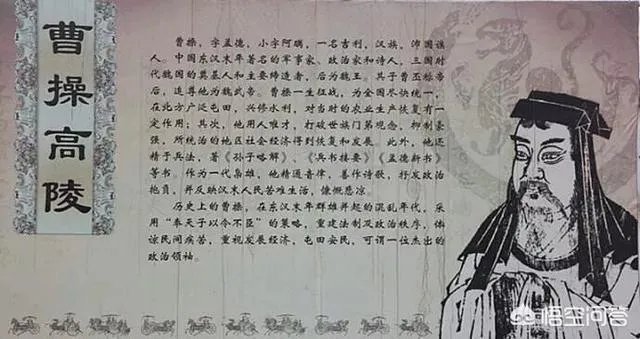 曹操高陵
曹操，字孟德，小字阿瞒，一名吉利，汉族，沛国谯
人。中国东汉末年著名的军事家、政治家和诗人，三国时
代魏国的奠基人和主要缔造者，后为魏王。其子曹丕称帝
后，追尊他为魏武帝。曹操一生征战，为全国尽快统一，
在北方广泛屯田，兴修水利，对当时的农业生产恢复有一
定作用；其次，他用人唯才，打破世族门第观念，抑制豪
强，所统治的地区社会经济得到恢复和发展。此外，他还
精于兵法，著《孙子略解》、《兵书接要》、《孟德新书》
等书。作为一代枭雄，他精通音律，善作诗歌，抒发政治
抱负，并反映汉末人民苦难生活，慷慨悲凉。
历史上的曹操，在东汉末年群雄并起的混乱年代，采
用“奉天子以令不臣”的策略，重建法制及政治秩序，体
谅民间疾苦，重视发展经济，屯田安民，可谓一位杰出的
政治领袖。
悟空问答